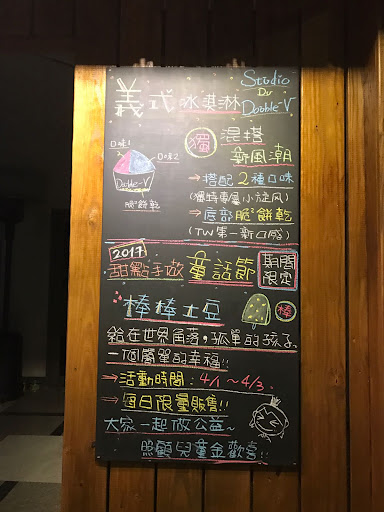 義式冰淇淋
Studio
Du
Double-V
獨
混搭
新風潮
口味1
口味2
Double-V
脆餅乾
→搭配2種口味
(獨特專屬小旋风)
→底部脆餅乾
(TW第一新口感)
2017
甜點手做童話節
期間
限定
棒棒土豆
棒
給在世界角落,孤單的孩子
一個屬單的幸福!!
→活動時間:4/1~4/3.
→每日限量販售!!
大家一起做公益~
照顧兒童金歡喜!!